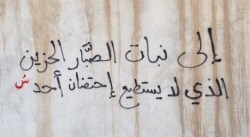 إلى نبات الصَّبَّار الحزين
الذي لا يستطيع إحتضان أحد ش